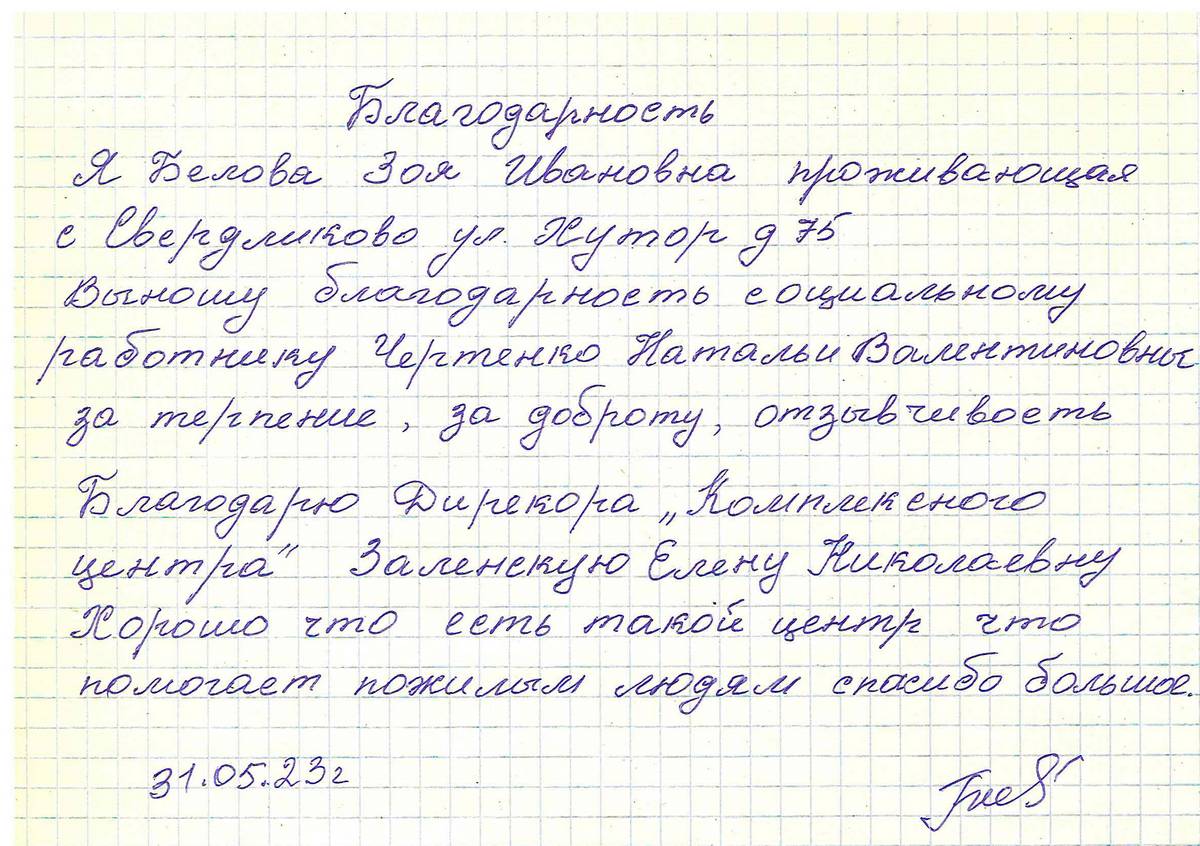 Благодарность
Я Белова Зоя Ивановна проживающая
с Свердликово ул. Хутор д 75
Выношу благодарность социальному
работнику Чертенко Натальи Валентиновны
за терпение, за доброту, отзывчивость
Благодарю Дирекора „Комплексного
центра" Заленскую Елену Николаевну
Хорошо что есть такой центр что
помогает пожилым людям спасибо большое.
31.05.23г